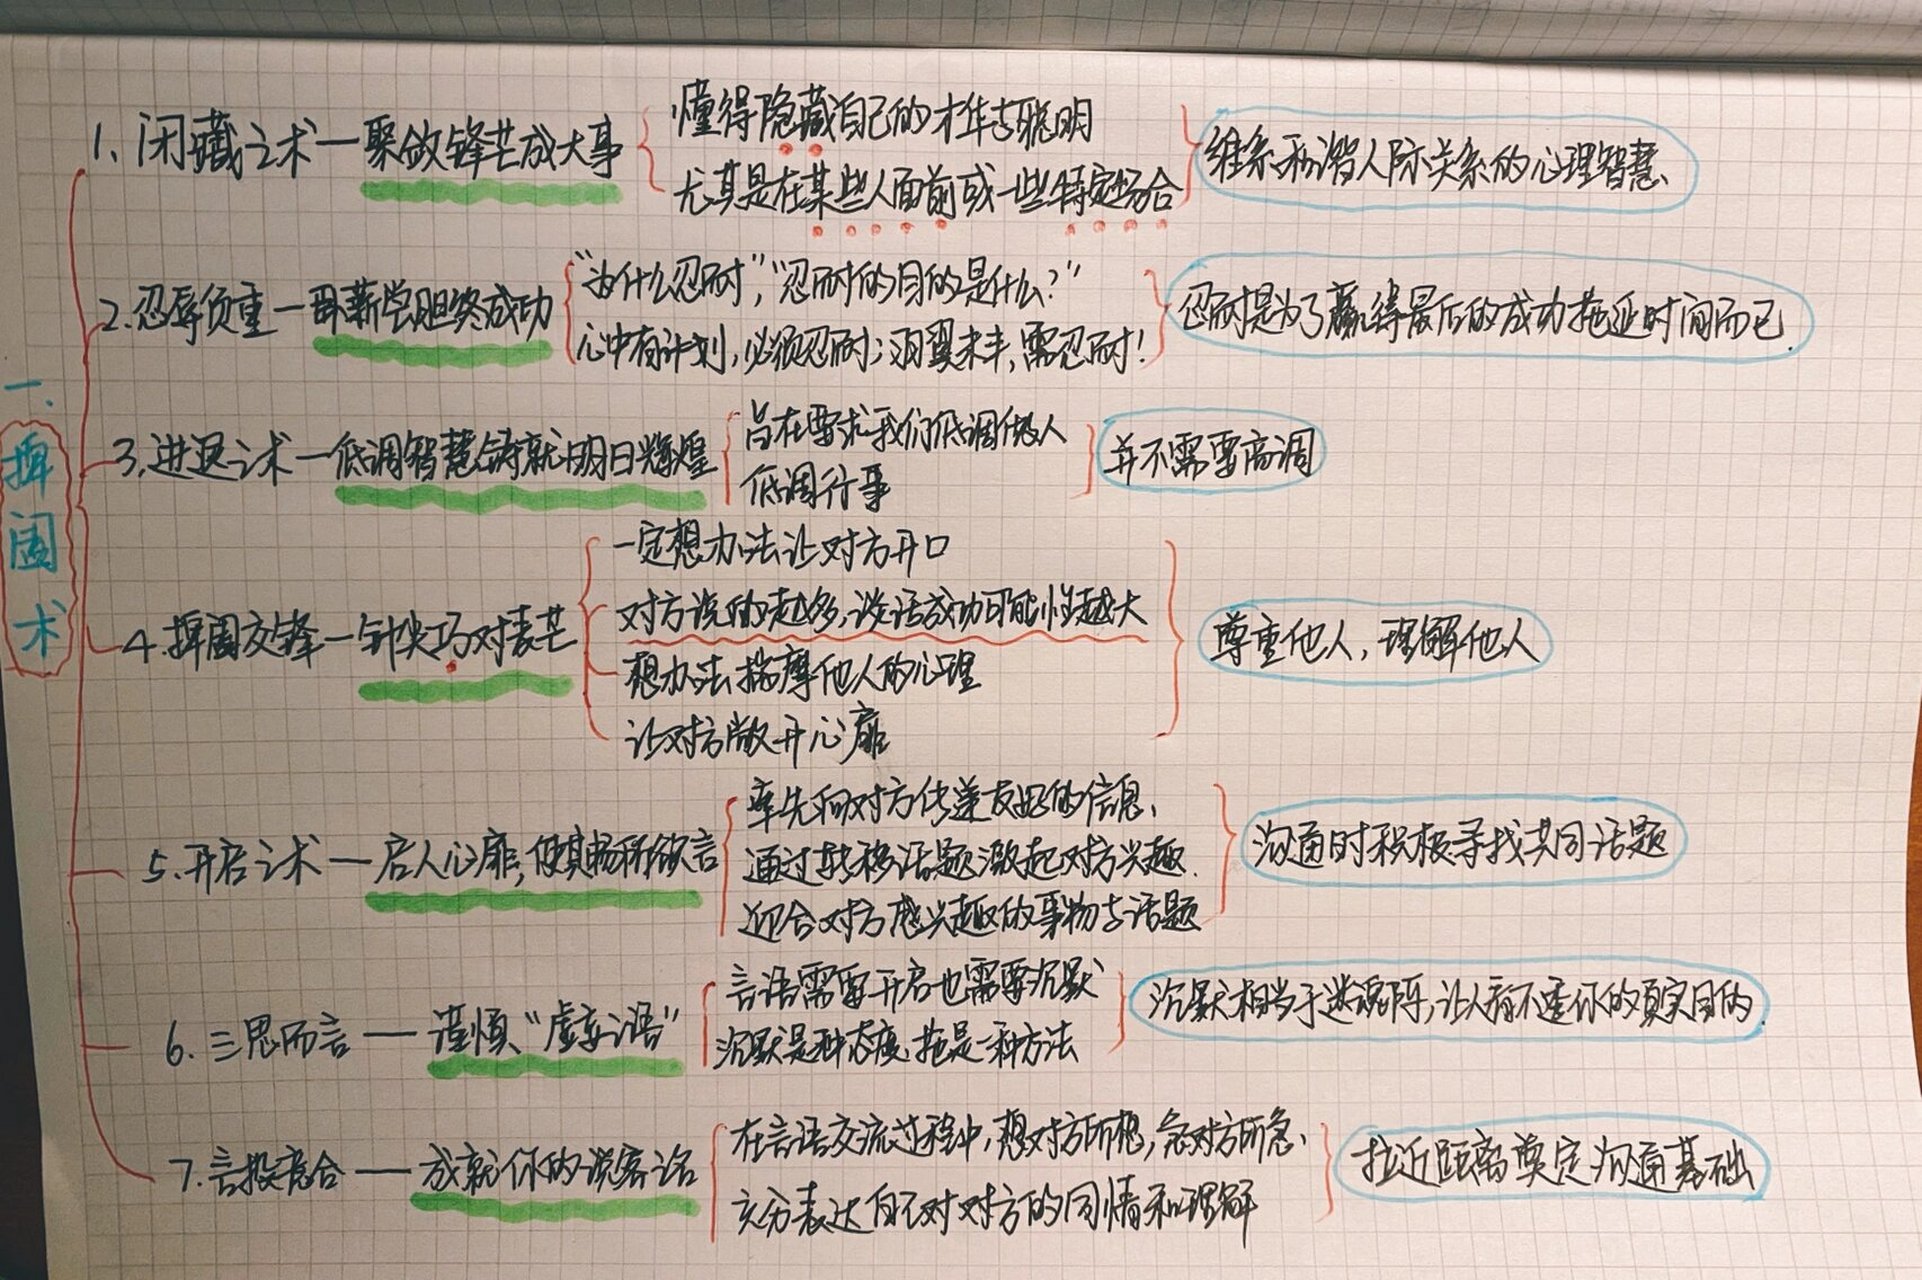 一、
捭阖术
1、闭藏之术—聚敛锋芒成大事
懂得隐藏自己的才华与聪明
尤其是在某些人面前或一些特定场合
维系和谐人际关系的心理智慧
2.忍辱负重—卧薪尝胆终成功
“为什么忍耐”,“忍耐的目的是什么?”
心中有计划,必须忍耐;羽翼未丰,需忍耐!
忍耐是为了赢得最后的成功拖延时间而已.
3.进退之术—低调智慧铸就明日辉煌
旨在要求我们低调做人
低调行事
并不需要高调
4.捭阖交锋—针尖巧对麦芒
一定想办法让对方开口
对方说的越多,谈话成功可能性越大
想办法揣摩他人的心理
让对方敞开心扉
尊重他人,理解他人
5.开启之术—启人心扉,使其畅所欲言
率先向对方传递友好的信息、
通过转移话题激起对方兴趣.
迎合对方感兴趣的事物与话题
沟通时积极寻找共同话题
6.三思而言—谨慎“虚妄之语”
言语需要开启也需要沉默
沉默是种态度、拖是一种方法
沉默相当于迷魂阵,让人看不透你的真实目的
7.言投意合—成就你的说客之名
在言语交流过程中,想对方所想,急对方所急、
充分表达自己对对方的同情和理解
拉近距离奠定沟通基础